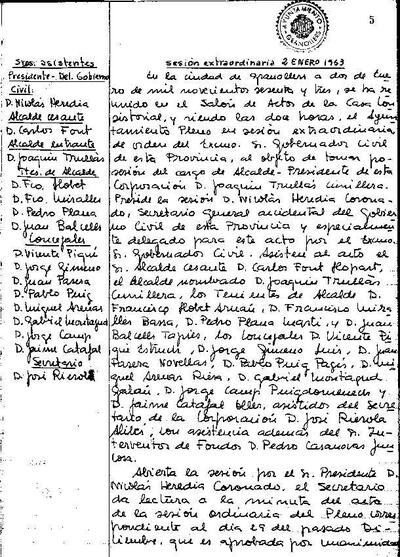 AYUNTAMIENTO
GRANOLLERS
5
Sres. asistentes
Presidente - Del. Gobierno
Civil:
D. Nicolás Heredia
Alcalde cesante
D. Carlos Font
Alcalde entrante
D. Joaquin Trullás
Ttes. de Alcalde
D. Fco. Llobet
D. Fco. Miralles
D. Pedro Plana
D. Juan Balcells
Concejales
D. Vicente Piqué
D. Jorge Gimeno
D. Juan Parera
D. Pablo Puig
D. Miguel Arenas
D. Gabriel Montagud
D. Jorge Camp
D. Jaime Catafal
Secretario
D. José Rierola
Sesión extraordinaria 2 ENERO 1963
En la ciudad de Granollers a dos de Ene-
ro de mil novecientos sesenta y tres, se ha re-
unido en el Salón de Actos de la Casa Con-
sistorial, y siendo las doce horas, el Ayun-
tamiento Pleno en sesión extraordinaria
de orden del Excmo. Sr. Gobernador Civil
de esta Provincia, al objeto de tomar po-
sesión del cargo de Alcalde-Presidente de esta
Corporación D. Joaquin Trullás
Preside la sesión D. Nicolás Heredia Corona-
do, Secretario General accidental del Gobier-
no Civil de esta Provincia y especialmen-
te delegado para este acto por el Excmo.
Sr. Gobernador Civil. Asisten al acto el
Sr. Alcalde cesante D. Carlos Font Llopart,
el Alcalde nombrado D. Joaquin Trullás
los Tenientes de Alcalde D.
Francisco Llobet Arnán, D. Francisco Mira-
lles Bassa, D. Pedro Plana Martí y D. Juan
Balcells Tapiés, los Concejales D. Vicente Pi-
qué D. Jorge Gimeno D. Juan
Parera Novellas, D. Pablo Puig Pagés, D. Mi-
guel Arenas Riera, D. Gabriel Montagud
D. Jorge Camp Puigdomenech y
D. Jaime Catafal Oller, asistidos del Secre-
tario de la Corporación D. José Rierola
con asistencia además del Sr. In-
terventor de Fondos D. Pedro Casanovas Jun-
cosa.
Abierta la sesión por el Sr. Presidente D.
Nicolás Heredia Coronado, el Secretario
da lectura a la minuta del acta
de la sesión ordinaria del Pleno corres-
pondiente al dia 29 del pasado Di-
ciembre, que es aprobada por unanimidad